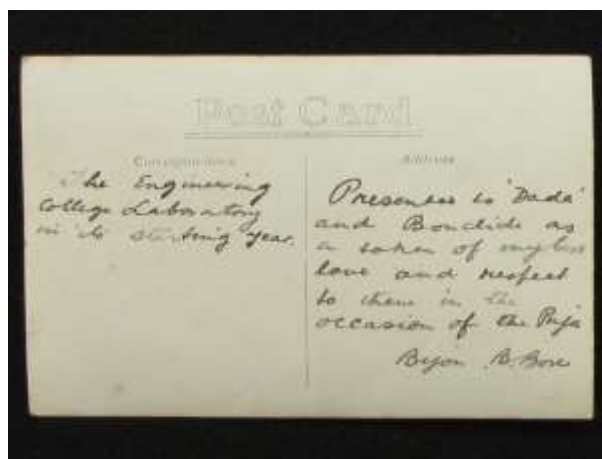 Post Card
Correspondence
The Engineering
College Laboratory
in its starting year.
Address
Presented to 'Dada'
and Boudidi as
a token of my
love and respect
to them in the
occasion of the Puja
B. Bose